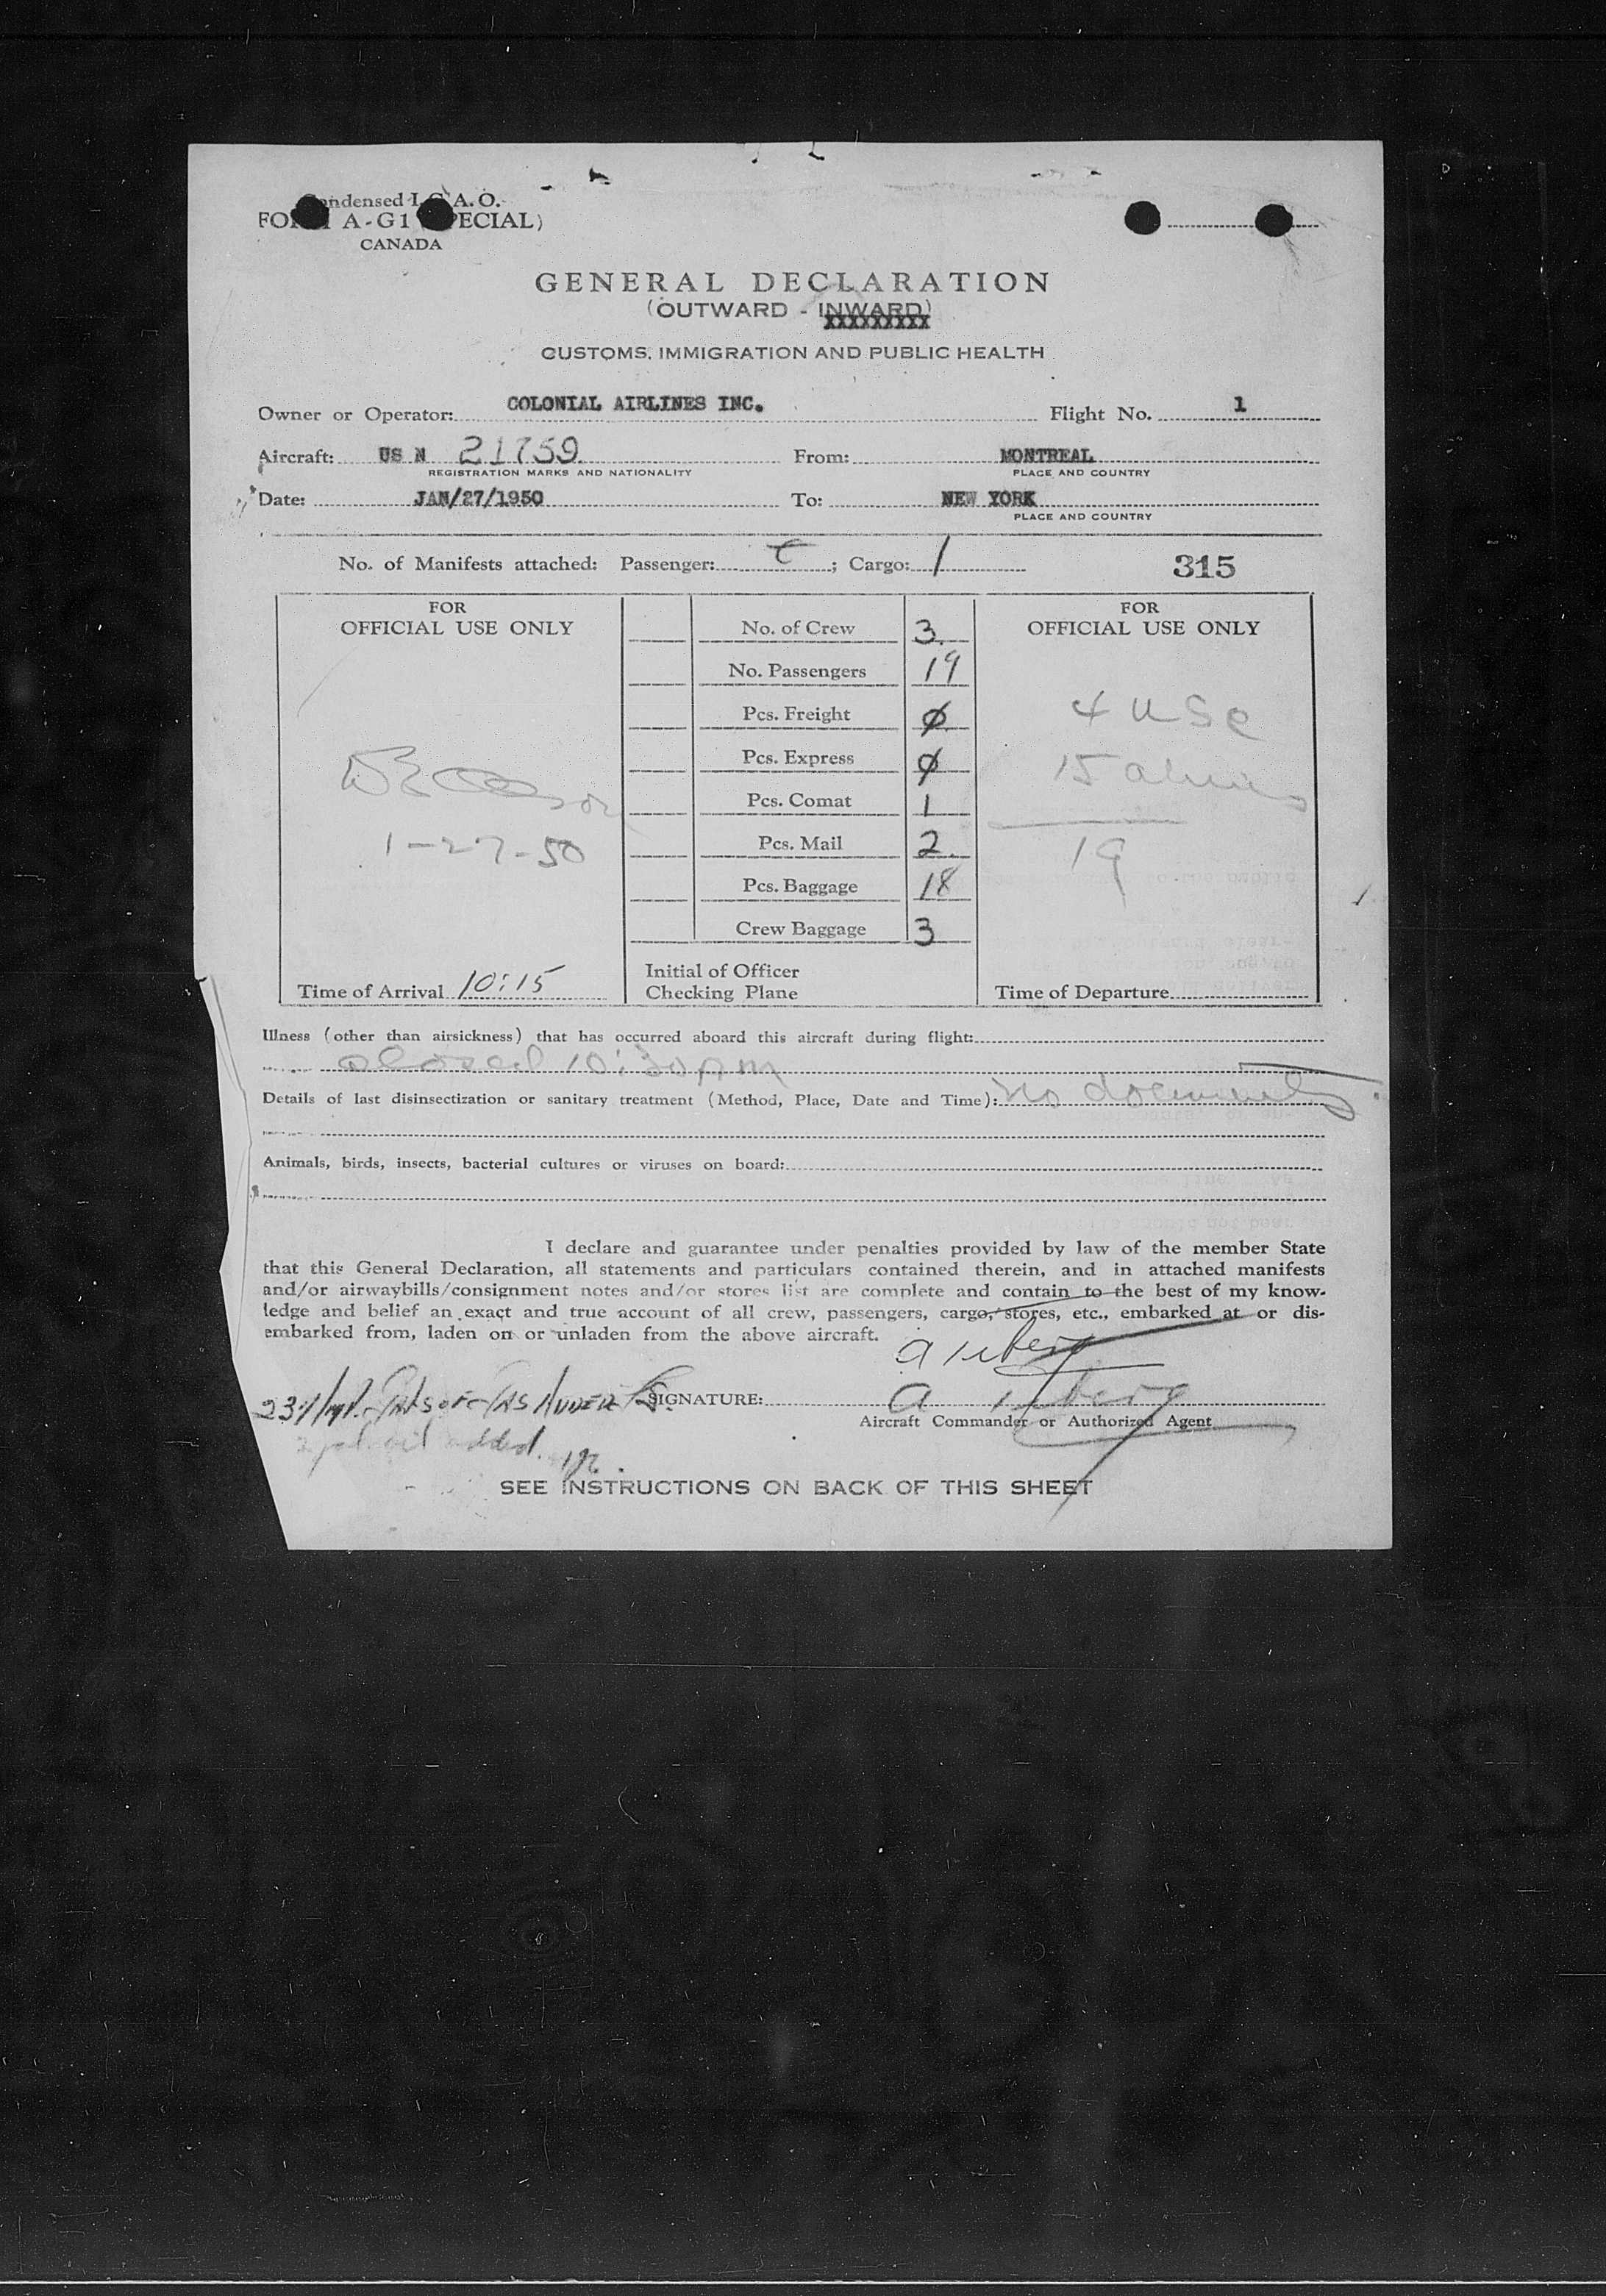 Condensed I.C.A.O.
FORM A-G1 (SPECIAL)
CANADA
GENERAL DECLARATION
(OUTWARD - INWARD)
XXXXXXXXX
CUSTOMS, IMMIGRATION AND PUBLIC HEALTH
Owner or Operator: COLONIAL AIRLINES INC. Flight No. 1
Aircraft: US N 21759 From: MONTREAL
REGISTRATION MARKS AND NATIONALITY PLACE AND COUNTRY
Date: JAN/27/1950 To: NEW YORK
PLACE AND COUNTRY
No. of Manifests attached: Passenger: ; Cargo: 1 315
FOR OFFICIAL USE ONLY
1-27-50
Time of Arrival 10:15
No. of Crew 3
No. Passengers 19
Pcs. Freight Ø
Pcs. Express Ø
Pcs. Comat 1
Pcs. Mail 2
Pcs. Baggage 18
Crew Baggage 3
Initial of Officer
Checking Plane
FOR
OFFICIAL USE ONLY
4 USC
15 aliens
19
Time of Departure
Illness (other than airsickness) that has occurred aboard this aircraft during flight:
closed 10:30 AM
Details of last disinsectization or sanitary treatment (Method, Place, Date and Time): No documents
Animals, birds, insects, bacterial cultures or viruses on board:
I declare and guarantee under penalties provided by law of the member State
that this General Declaration, all statements and particulars contained therein, and in attached manifests
and/or airwaybills/consignment notes and/or stores list are complete and contain to the best of my know-
ledge and belief an exact and true account of all crew, passengers, cargo, stores, etc., embarked at or dis-
embarked from, laden on or unladen from the above aircraft.
SIGNATURE:
Aircraft Commander or Authorized Agent
oil added.
SEE INSTRUCTIONS ON BACK OF THIS SHEET